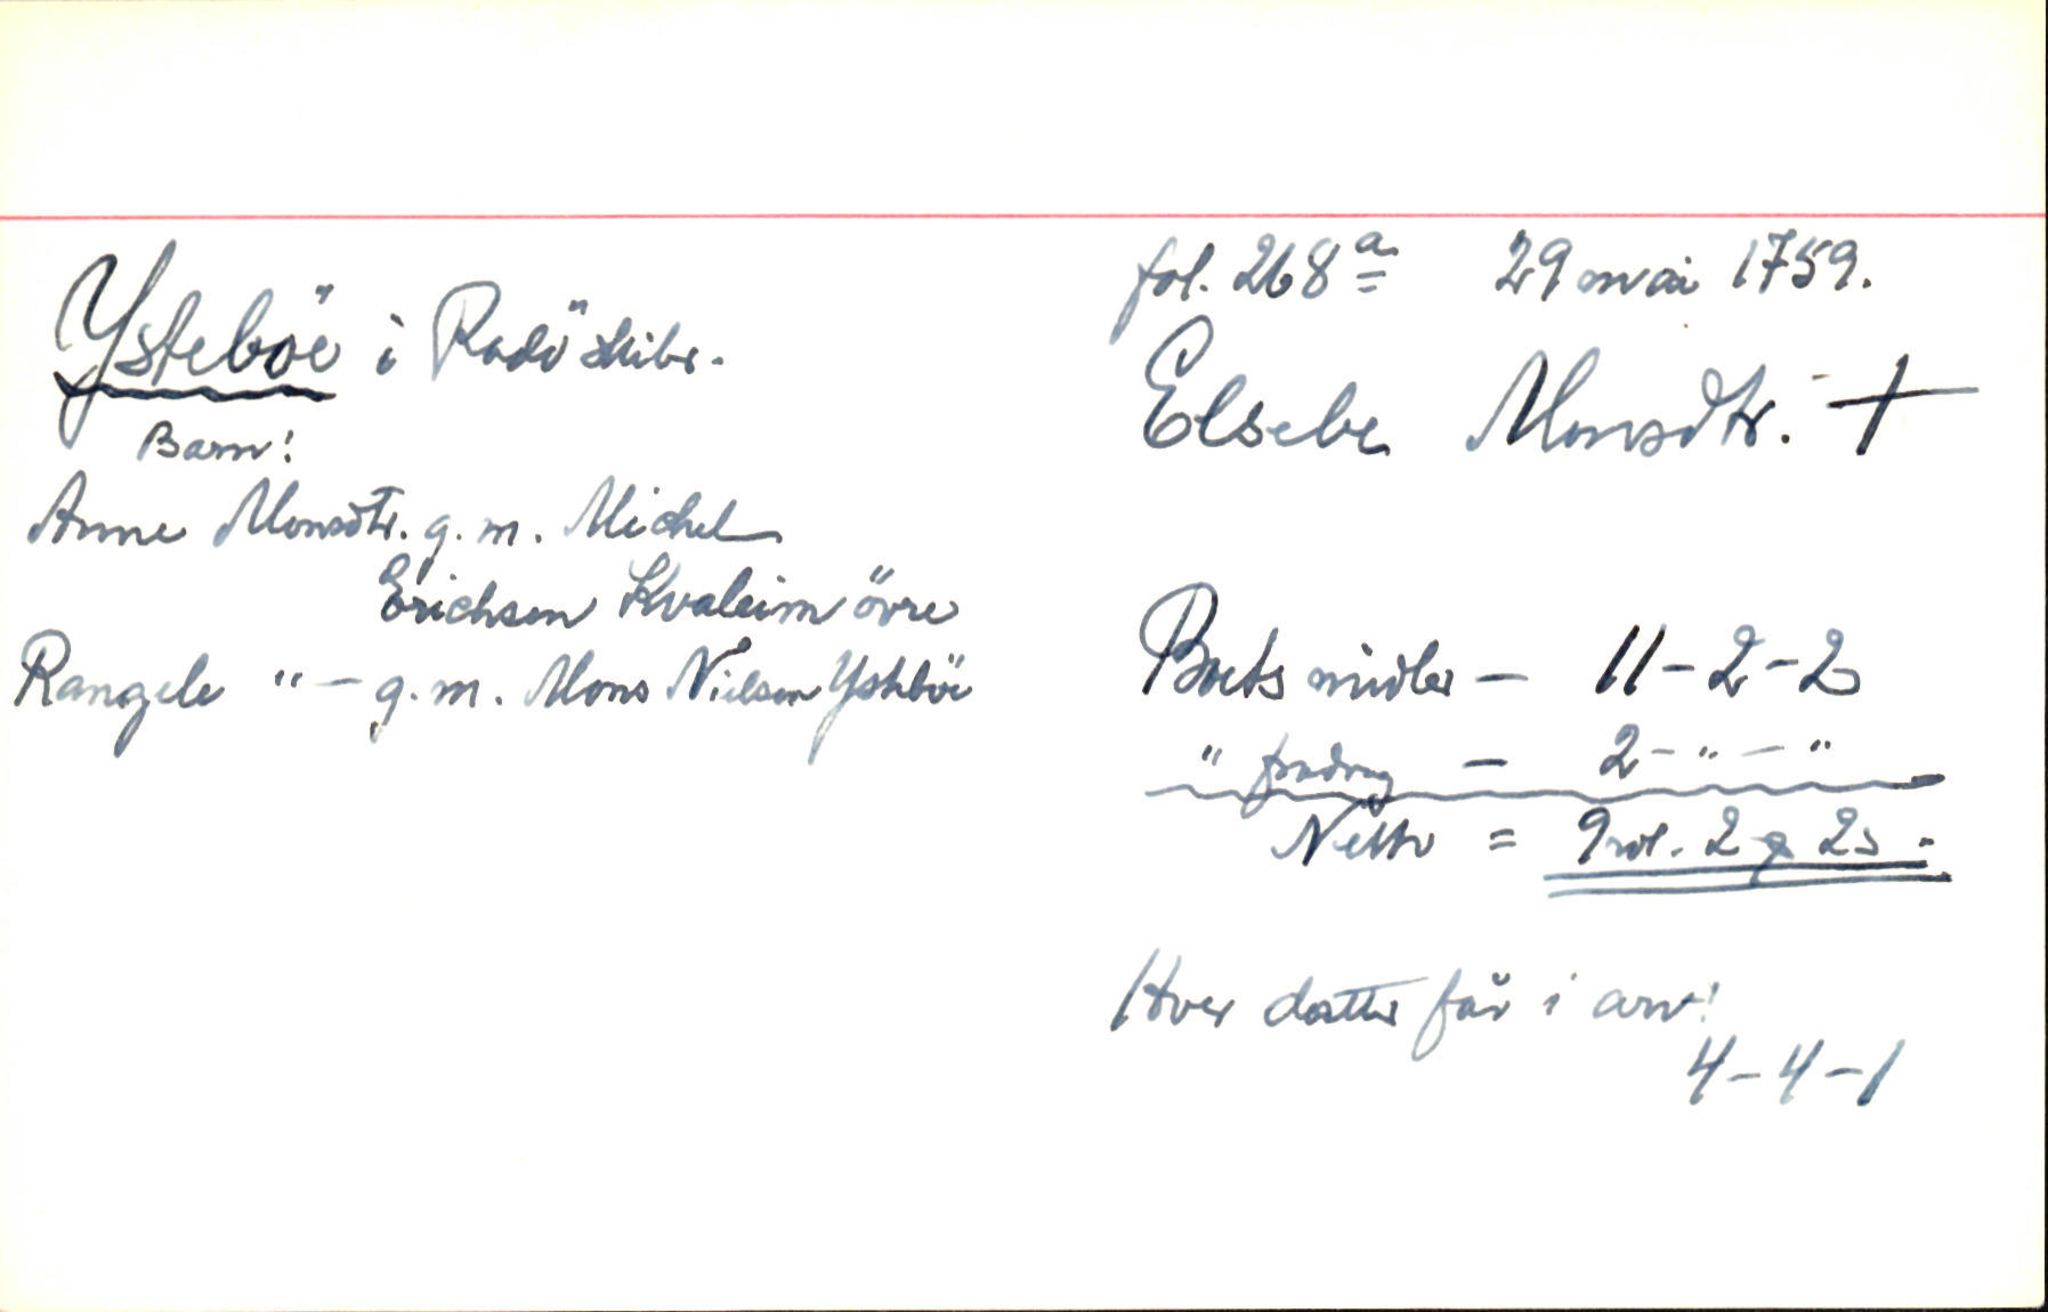 Ysteböe i Radö skibr.
Barn:
Anne Monsdtr. g. m. Michel
Erichsen Kvaleim övre
Rangele " — g. m. Mons Nielsen Ysteböe
fol. 268 a 29 mai 1759.
Elsebe Monsdtr. +
Boets midler — 11 - 2 - 2
" fradrag — 2 - " - "
Netto = 9 rdl. 2 ƍ 2 s.
Hver datter får i arv:
4 - 4 - 1